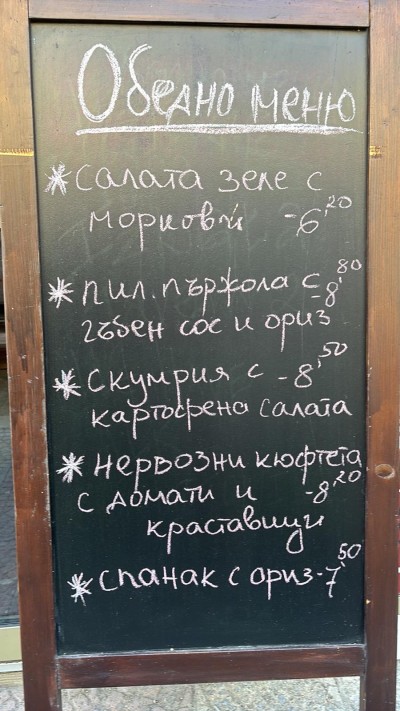 Обедно меню
* салата зеле с
моркови - 6,20
* пил. пържола с - 8,80
гъбен сос и ориз
* скумрия с - 8,50
картофена салата
* нервозни кюфтета
с домати и - 8,20
краставици
* спанак с ориз - 7,50